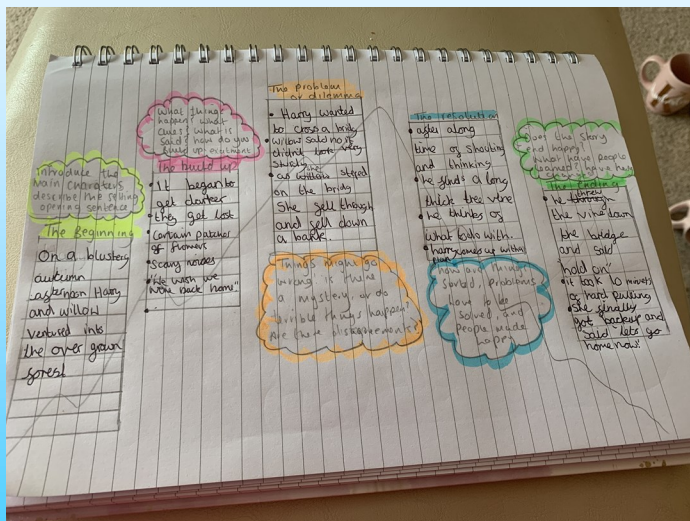 Introduce the
main charaters
describe the setting
opening sentence
The Beginning
On a blustery
autumn
afternoon Harry
and willow
ventured into
the over grown
forest
What things
happen? what
clues? what is
said? how do you
build up excitment
The build up
It began to
get darker
they get lost
Certain patches
of flowers
scary noises
"We wish we
were back home"
The problem
or dilemma
Harry wanted
to cross a bridg
willow said no it
didn't look very
Sturdy
as willow steped
on the bridg
She fell though
and fell down
a bank.
Things might go
wrong, is there
a mystery, or do
terrible things happen?
Are there disagreements?
The resolution
after along
time of shouting
and thinking
he finds a long
thick tree vine
he thinks of
what to do with.
harry comes up with a
plan
how are things
sorted, problems
have to be
solved, and
people made
happy
Does the story
end happy?
What have people
learned?
The Ending
he threw
the vine down
the bridge
and said
hold on"
it took 10 minuets
of hard pulling
She finally
got back up and
said "lets go
home now."